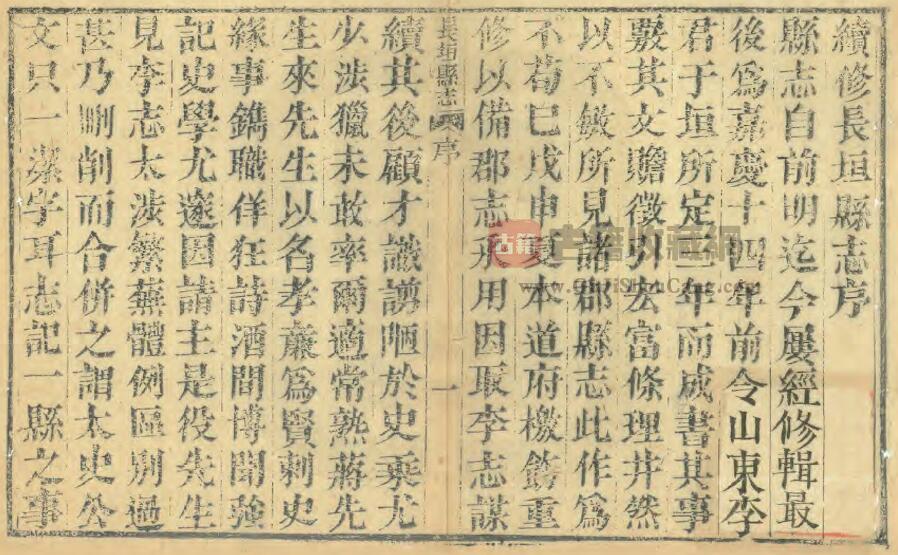 續修長垣縣志序
縣志自前明迄今屢經修輯最
後爲嘉慶十四年前令山東李
君于垣所定三年而成書其事
覈其文贍徵引宏富條理井然
以不敏所見諸郡縣志此作爲
不苟已戊申夏本道府檄飭重
修以備郡志采用因取李志謀
長垣縣志 序
一
續其後顧才識謭陋於史乘尤
少涉獵未敢率爾適常熟蔣先
生來先生以名孝廉爲賢刺史
緣事鐫職佯狂詩酒間博聞強
記史學尤邃因請主是役先生
見李志太涉繁蕪體例區別過
甚乃刪削而合併之謂太史公
文只一潔字耳志記一縣之事
古籍
古籍收藏網